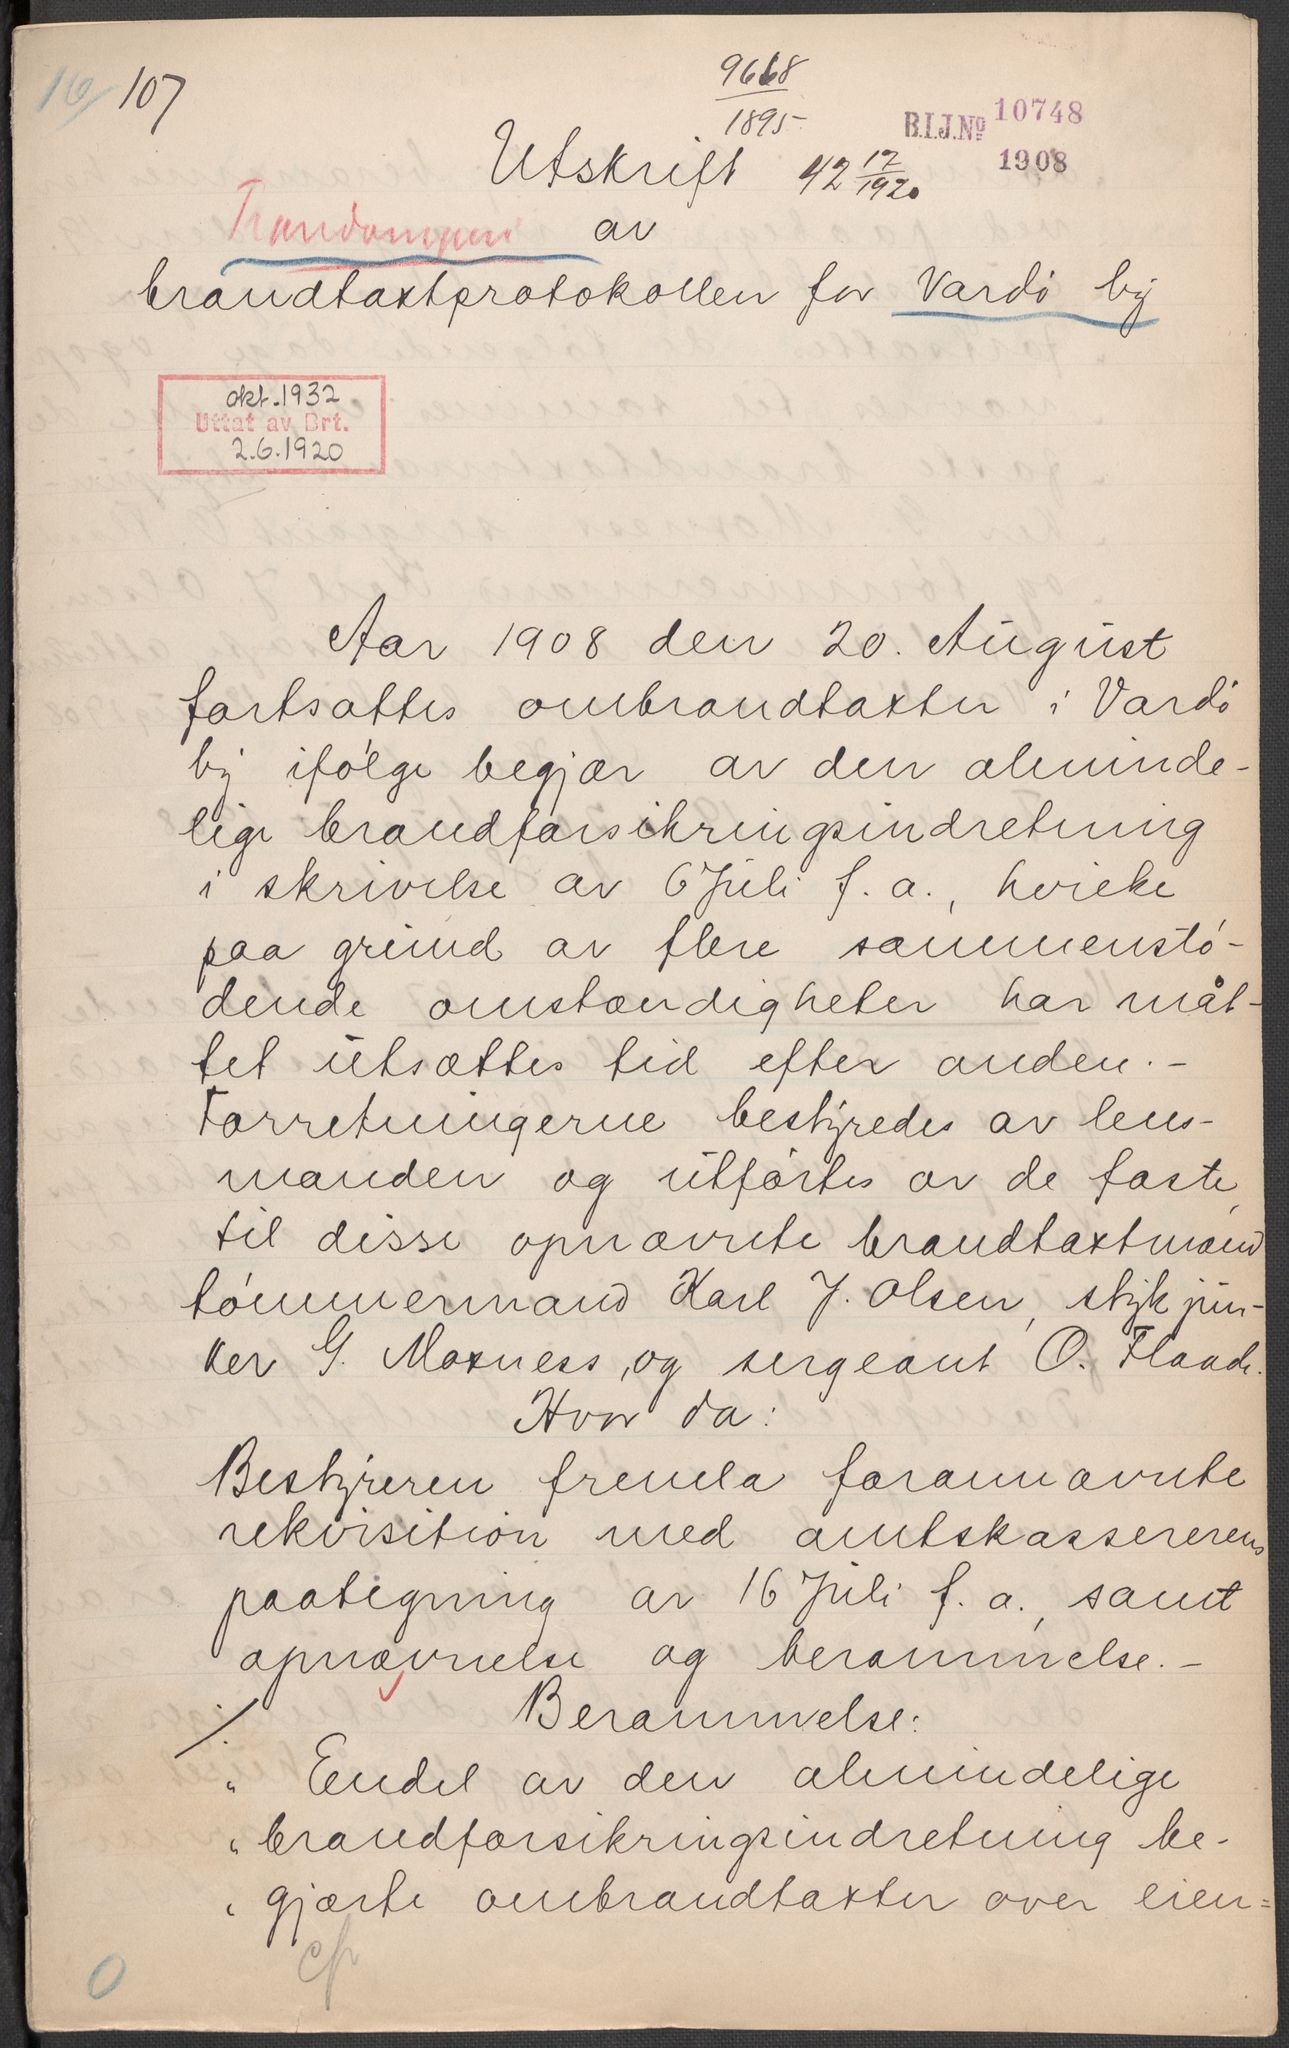 16/ 107
9668
1895
B.I.J.Nº 10748
1908
Utskrift 42 17/1920
av
brandtaxtprotokollen for Vardö by
okt. 1932
Uttat av Brt.
2.6.1920
Aar 1908 den 20. August
fortsattes ombrandtaxter i Vardö
by ifölge begjær av den alminde-
lige brandforsikringsindretning
i skrivelse av 6 Juli f. a., hvilke
paa grund av flere sammenstö-
dende omstændigheter har måt-
tet utsættes tid efter anden. -
Forretningerne bestyredes av lens-
manden og utförtes av de faste,
til disse opnævnte brandtaxtmænd
tömmermand Karl J. Olsen, stykjun-
ker G. Moxness, og sergeant O. Flaade.
Hvor da:
Bestyreren fremla forannævnte
rekvisition med amtskassererens
paategning av 16 Juli f. a., samt
opnævnelse og berammelse. -
./. Berammelse:
" Endel av den almindelige
" brandforsikringsindretning be-
" gjærte ombrandtaxter over eien=
0